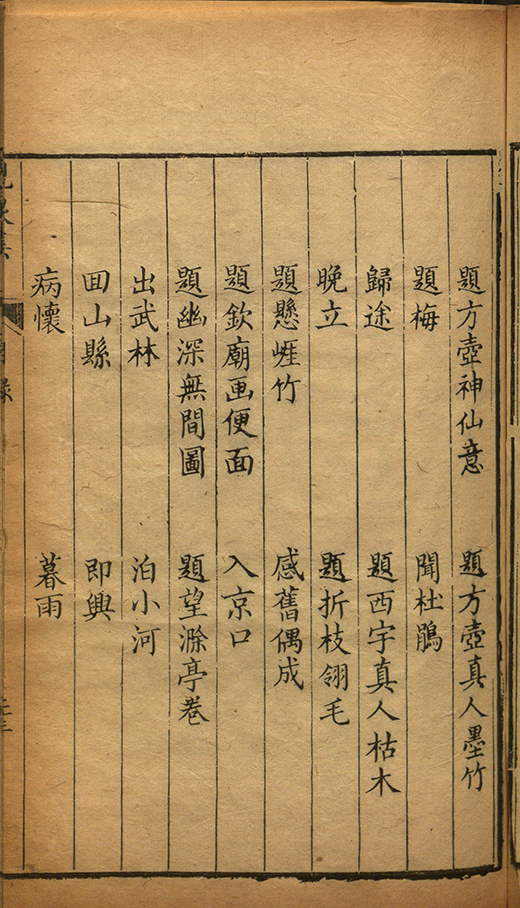 題方壺神仙意 題方壺真人墨竹
題梅 聞杜鵑
歸途 題西宇真人枯木
晚立 題折枝翎毛
題懸崖竹 感舊偶成
題欽廟画便面 入京口
題幽深無間圖 題望滁亭卷
出武林 泊小河
回山縣 即興
病懷 暮雨